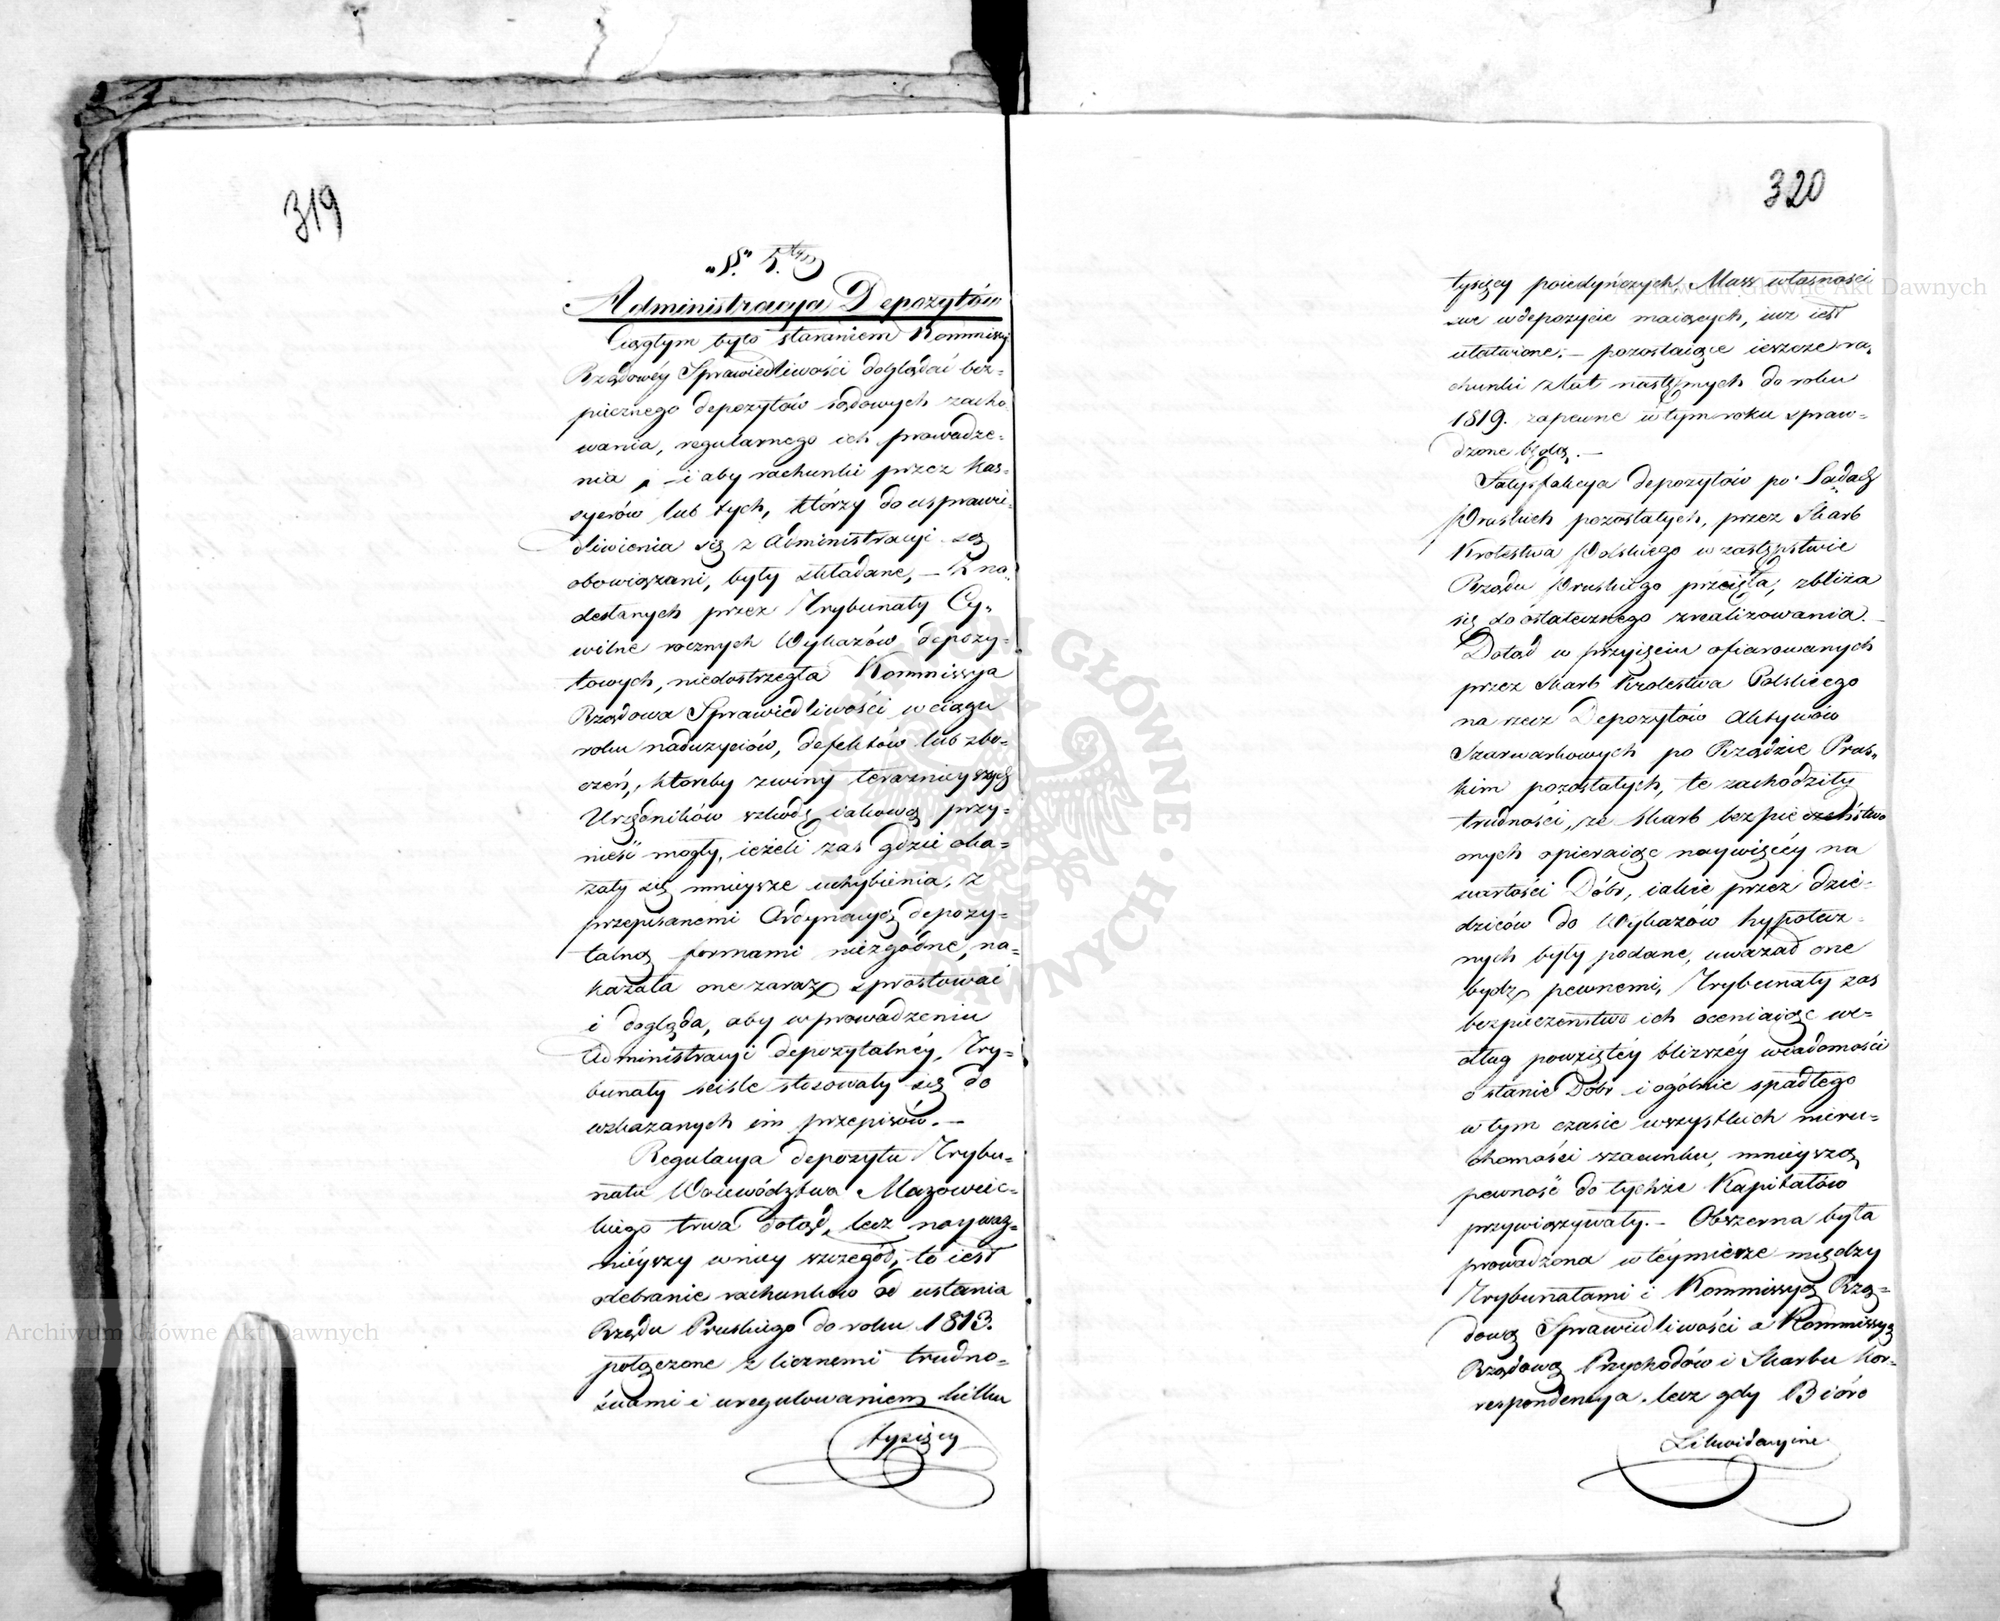 319
„§." 5.ty
Administracya Depozytów
Ciągłym było staraniem Kommissyi
Rządowéy Sprawiedliwości doglądać bez=
piecznego depozytów sądowych zacho=
wania, regularnego ich prowadze=
nia, – i aby rachunki przez Kas=
syerów lub tych, którzy do usprawie=
dliwienia się z Administracyi są
obowiązani, były składane, – Z na=
desłanych przez Trybunały Cy=
wilne rocznych Wykazów depozy=
towych, niedostrzegła Kommissya
Rządowa Sprawiedliwości w ciągu
roku nadużyciów, defektów lub zbo=
czeń, któreby z winy teraznieyszych
Urzędników szkodę iakową przy=
nieść mogły, ieżeli zas gdzie oka=
zały się mnieysze uchybienia, z
przepisanemi Ordynacyą depozy=
talną formami niezgodne, na=
kazała one zaraz sprostować
i dogląda, aby w prowadzeniu
Administracyi depozytalnéy, Try=
bunały scisle stosowały się do
wskazanych im przepisów. –
Regulacya depozytu Trybu=
nału Woiewództwa Mazowiec=
kiego trwa dotąd, lecz nayważ=
nieyszy w niey szczegół, to iest
odebranie rachunków od ustania
Rządu Pruskiego do roku 1813.
połączone z licznemi trudno=
ściami i uregulowaniem kilku
tysięcy
320
tysięcy poiedyńczych Mass własności
swe w depozycie maiących, iuż iest
ułatwione; – pozostaiące ieszcze ra=
chunki z lat następnych do roku
1819. zapewne w tym roku spraw=
dzone będą. –
Satysfakcya depozytów po Sądach
Pruskich pozostałych, przez Skarb
Królestwa Polskiego w zastępstwie
Rządu Pruskiego przeięta, zbliża
się do ostatecznego zrealizowania. –
Dotąd w przyięciu ofiarowanych
przez Skarb Królestwa Polskiego
na rzecz Depozytów Aktywów
Szarwarkowych po Rządzie Prus=
kim pozostałych, te zachodziły
trudności, że Skarb bezpieczeństwo
onych opieraiąc naywięcéy na
wartości Dóbr, iakie przez dzie=
dziców do Wykazów hypotecz=
nych były podane, uważał one
bydź pewnemi, Trybunały zas
bezpieczeństwo ich oceniaiąc we=
dług powziętéy bliższéy wiadomości
o stanie Dóbr i ogólnie spadłego
w tym czasie wszystkich nieru=
chomości szacunku, mnieyszą
pewność do tychże Kapitałów
przywiązywały. – Obszerna była
prowadzona w téymierze między
Trybunałami i Kommissyą Rzą=
dową Sprawiedliwości a Kommissyą
Rządową Przychodów i Skarbu kor=
respondencya, lecz gdy Bióro
Likwidacyine
Archiwum Główne Akt Dawnych
Archiwum Główne Akt Dawnych